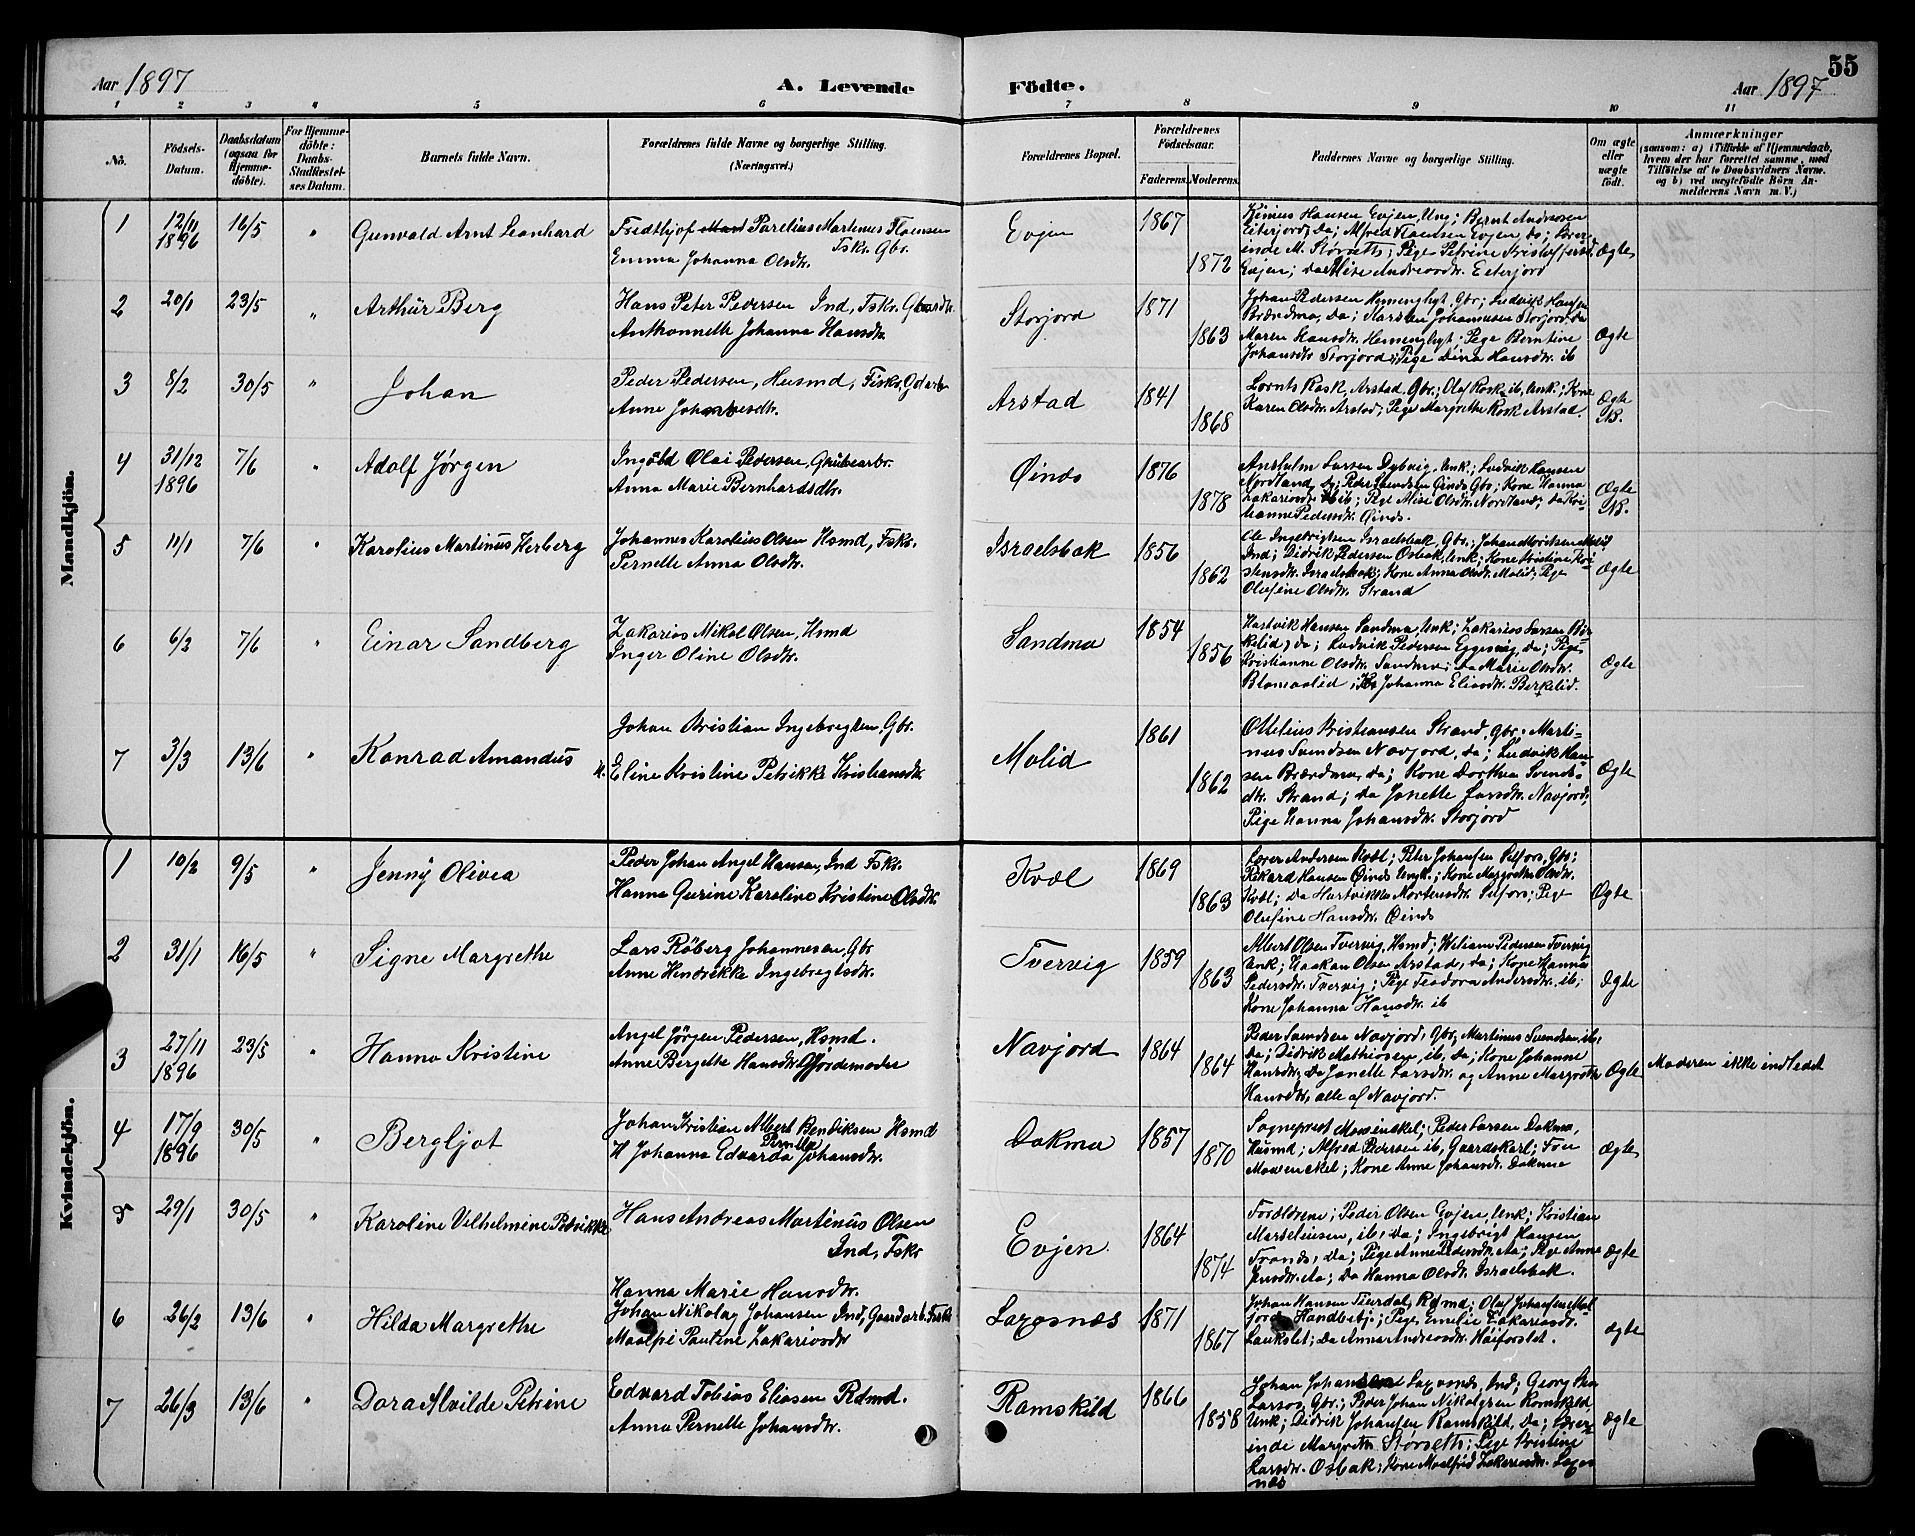 55
Aar 1897
A. Levende
Födte.
Aar 1897
1 2 3 4 5 6 7 8 9 10 11
No.
Födsels-
Datum.
Daabsdatum
(ogsaa for
Hjemme-
döbte).
For Hjemme-
döbte:
Daabs-
Stadfæstel-
ses Datum.
Barnets fulde Navn.
Forældrenes fulde Navne og borgerlige Stilling.
(Næringsvei.)
Forældrenes Bopæl.
Forældrenes
Födselsaar.
Faderens. Moderens.
Faddernes Navne og borgerlige Stilling.
Om ægte
eller
uægte
födt.
Anmærkninger
(saasom: a) i Tilfælde af Hjemmedaab,
hvem der har forrettet samme, med
Tilföielse af to Daabsvidners Navne.
og b) ved uægtefödte Börn An-
melderens Navn m. V.)
Mandkjön.
1
12/11
1896
16/5
"
Gunvald Arnt Leonhard
Fredthjof Parelius Martenus Hansen
Fskr. Gbr.
Emma Johanna Olsdtr.
Evjen
1867
1872
Hansen Evjen, Ung; Bernt Andreasen
Eiterjord, Da; Alfred Hansen Evjen, Do; Lærer-
inde M. Størseth; Pige Petrine Kristoffersd.
Evjen; Da Elise Andreasdtr. Eiterjord
Ægte
2
20/1
23/5
"
Arthur Berg
Hans Peter Pedersen Ind, Fskr.
Anthonnette Johanna Hansdtr.
Storjord
1871
1863
Johan Pedersen Hemenghyt, Gbr; Ludvik Hansen
Brændmo, Da; Karsten Johannesen Storjord, Da
Maren Hansdtr. Hemenghyt; Pige Berntine
Johansdtr Storjord; Pige Dina Hansdtr. ib
Ægte
3
8/2
30/5
"
Johan
Peder Pedersen, Husmd, Fiskr,
Anne Johannesdtr.
Arstad
1841
1868
Lornts Rosk, Arstad, Gbr.; Olaf Rosk ib, Unk; Kone
Karen Olsdtr. Arstad; Pige Margrethe Rosk Arstad.
Ægte
N.
4
31/12
1896
7/6
"
Adolf Jørgen
Ingobd Olai Pedersen, Grubearbr.
Anna Marie Bernhardsdtr.
Øinds
1876
1878
Anshelm Larsen Dybvig, Unk; Ludvik Hansen
Nordland, Da; Peder Svendsen Øinds Gbr; Kone Hanna
Zakariasdtr. ib; Pige Mise Olsdtr. Nordland; Da Kri-
hanne Pedersdtr. Øinds.
Ægte
N.
5
11/1
7/6
"
Karolius Martinus Herberg
Johannes Karolius Olsen Hsmd, Fskr.
Pernelle Anna Olsdtr.
Israelsbak
1856
1862
Ole Ingebrigtsen Israelsbak, Gbr.;
Ind; Didrik Pedersen Osbak, Unk; Kone Kristine Kri-
stensdtr. Israelsbak; Kone Anna Olsdtr. Molid; Pige
Olufine Olsdtr. Strand
Ægte
6
6/2
7/6
"
Einar Sandberg
Zakarias Mikal Olsen, Hsmd
Inger Oline Olsdtr.
Sandmo
1854
1856
Hartvik Hansen Sandmo, Unk; Zakarias Larsen Bir-
kelid, Da; Ludvik Pedersen Eggesvig, Da; Pige
Kristianne Olsdtr. Sandmo; Da Marie Olsdtr.
Blomaalid; Johanna Eliasdtr. Berkelid.
Ægte
7
3/3
13/6
"
Konrad Amandus
Johan Kristian Ingebregtsen, Gbr.
H. Eline Kristine Petrikke Kristiansdtr.
Molid
1861
1862
Ottelius Kristiansen Strand, Gbr. Marti-
nus Svendsen Navjord, Da; Ludvik Han-
sen Brændmo, Da; Kone Dorthea Svends-
dtr. Strand; Da Jonette Larsdtr. Navjord;
Pige Hanna Johansdtr. Storjord
Ægte
Kvindekjön.
1
10/2
9/5
"
Jenny Olivea
Peder Johan Angel Hansen, Ind Fskr.
Hanna Gurine Karoline Kristine Olsdtr.
Kvæl
1869
1863
Lærer Andersen Kvæl; Peter Johansen Selfors, Gbr;
Rikard Hansen Øinds Ungk.; Kone Margrethe Olsdtr.
Kvæl; Da Hartvikke Mortensdtr. Selfors; Pige
Olufine Hansdtr. Øinds
Ægte
2
31/1
16/5
"
Signe Margrethe
Lars Røberg Johannesen, Gbr
Anne Hendrikke Ingebregtsdtr.
Tvervig
1859
1863
Albert Olsen Tvervig, Hsmd; Weliam Pedersen Tvervig
Unk; Haakan Olsen Arstad, Da; Kone Hanna
Pedersdtr. Tvervig; Pige Teodora Andersdtr. ib;
Kone Johanna Hansdtr. ib
Ægte
3
27/11
1896
23/5
"
Hanna Kristine
Angel Jørgen Pedersen, Hsmd.
Anne Bergitte Hansdtr. Gjordemoder
Navjord
1864
1864
Peder Svendsen Navjord, Gbr; Martinus Svendsen ib,
Da; Didrik Mathiasen, ib, Da; Kone Johanne
Hansdtr, Da Janette Larsdtr. og Anne Margrethe
Hansdtr, alle af Navjord.
Ægte
Moderen ikke indledet
4
17/9
1896
30/5
"
Bergljot
Johan Kristian Albert Bendiksen Hsmd
Pernelle
H Johanna Edvarda Johansdtr.
Dokmo
1857
1870
Sogneprest Mowinckel; Peder Larsen Dokmo,
Husmd; Alfred Pedersen ib, Gaardskarl; Fru
Mowinckel; Kone Anne Johansdtr. Dokmo
Ægte
5
29/1
30/5
"
Karoline Vilhelmine Petrikke
Hans Andreas Martinus Olsen
Ind, Fskr
Hanna Marie Hansdtr.
Evjen
1864
1874
Forældrene; Peder Olsen Evjen, Unk; Kristian
Marseliusen, ib, Da; Ingebrigt Hansen
Da; Pige Anne Pedersdtr. Aa; Pige Anne
Jensdtr. Aa; Da Hanna Olsdtr. Israelsbak.
Ægte
6
26/2
13/6
"
Hilda Margrethe
Johan Nikolay Johansen Ind, Gaardarb. Fskr
Maalfri Pauline Zakariasdtr
Laxesnæs
1871
1867
Johan Hansen Teurdal, Rdmd; Oluf Johansen
Handbetj.; Pige Emelie Zakariasdtr.
Laukslet; Da Anna Andreasdtr. Høiforslet.
Ægte
7
26/3
13/6
"
Dora Alvilde Petrine
Edvard Tobias Eliasen Rdmd.
Anna Pernelle Johansdtr.
Ramskild
1866
1858
Johan Johansen Laxosnæs, Ind; Georg
Larsos, Gbr.; Peder Johan Nikolajsen Ramskild,
Unk; Didrik Johansen Ramskild, Da; Lærer-
inde Margrethe Størseth; Pige Kristine
Larsdtr. Osbak; Kone Maalfrid Zakariasdtr. Laxes-
næs
Ægte